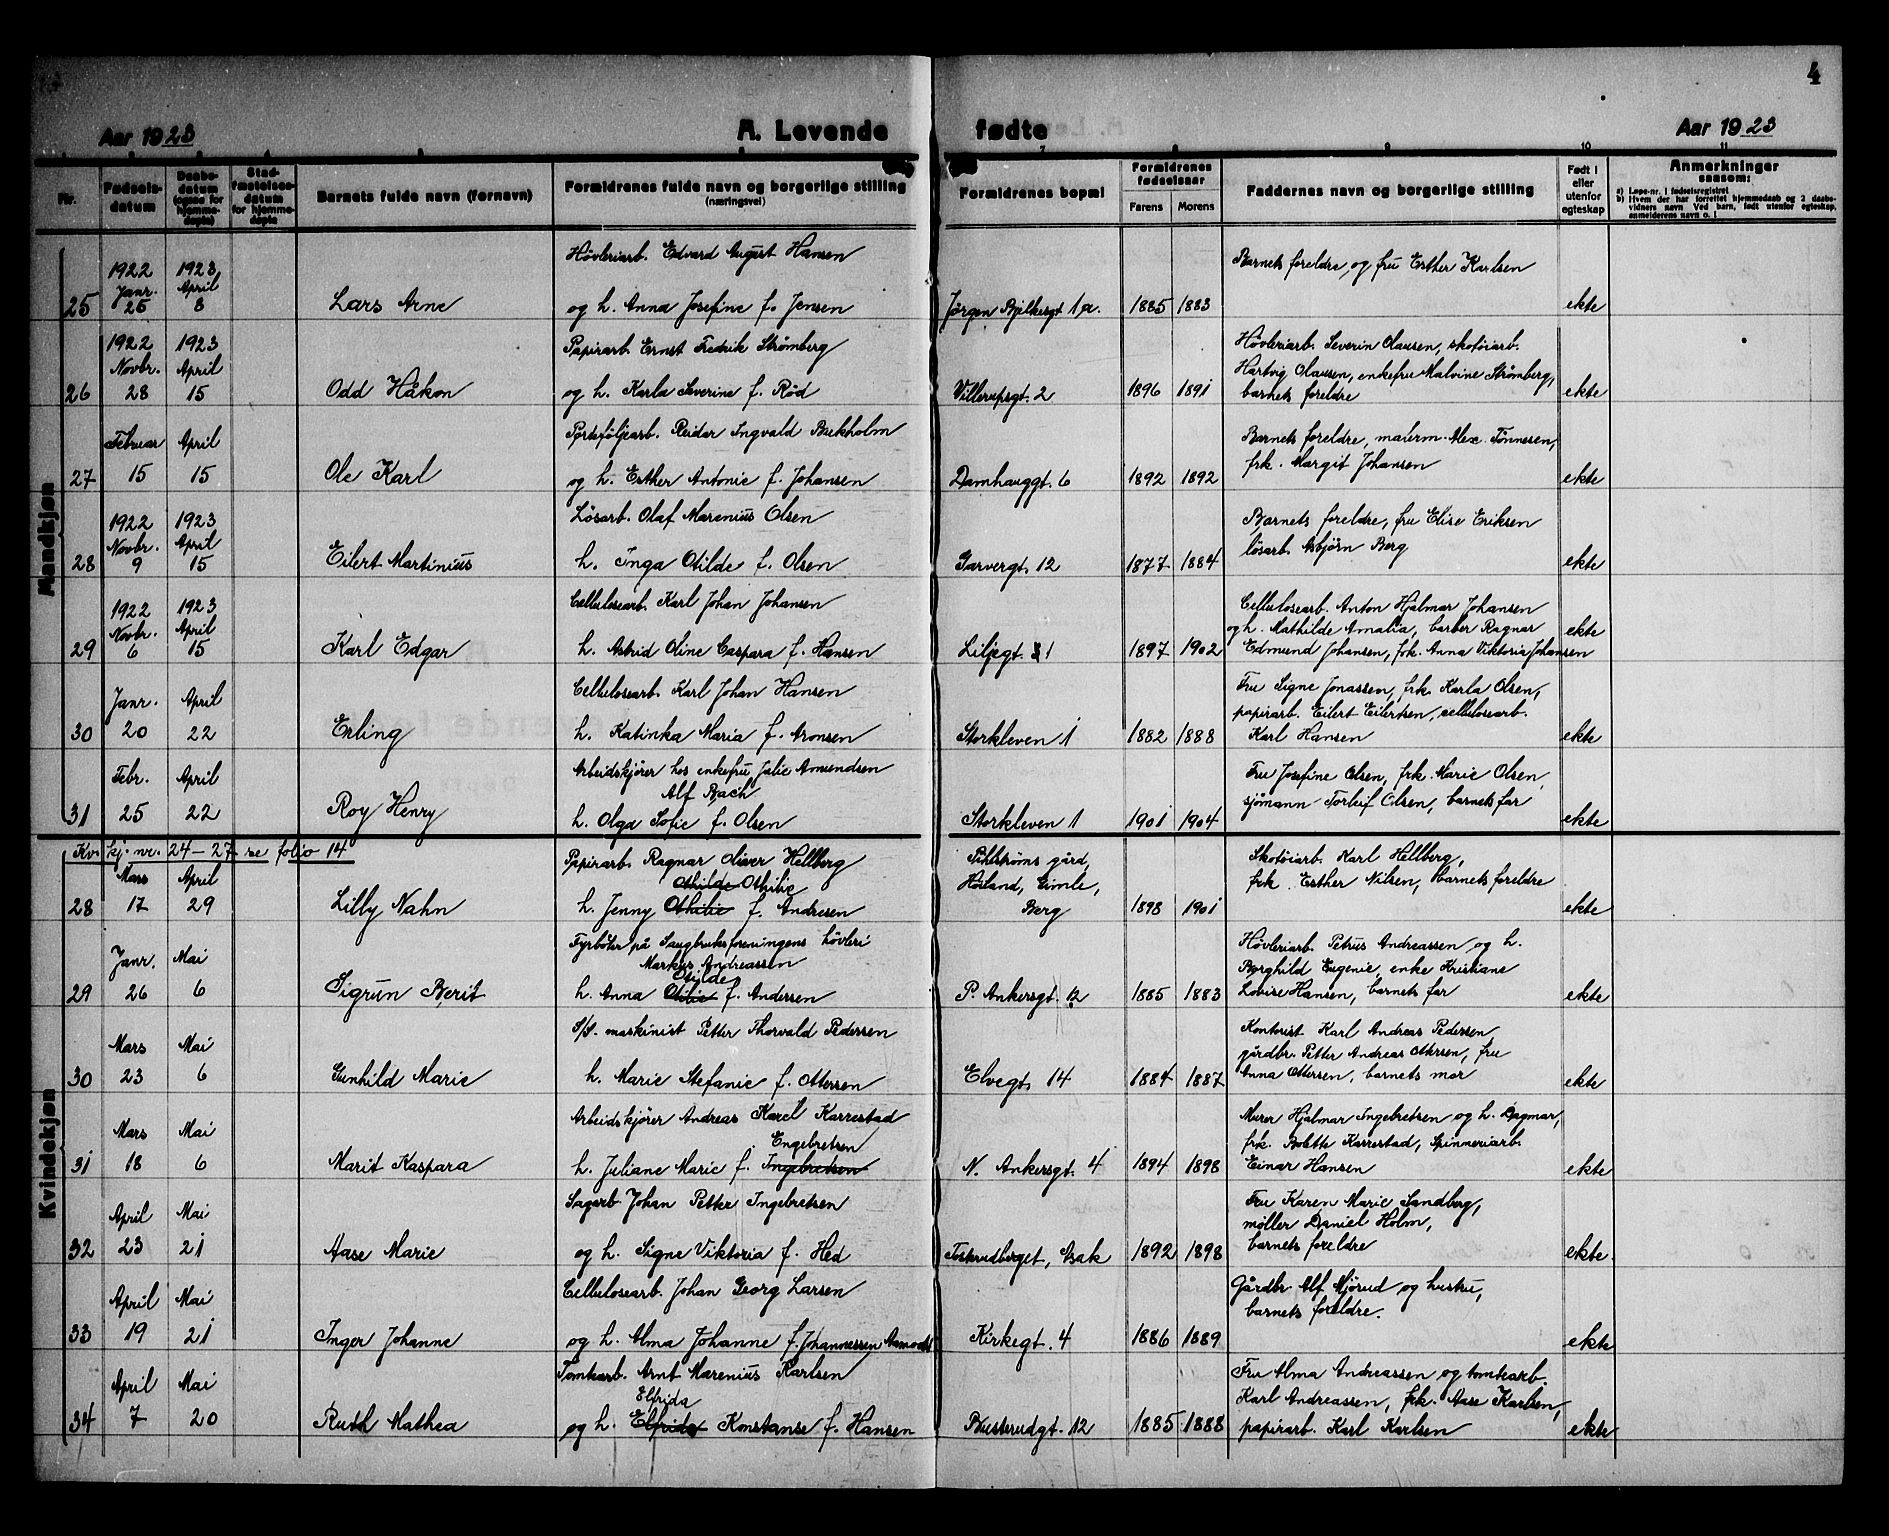 4
Aar 1923
A. Levende fødte
Aar 1923
Nr. Fødsels-datum Daabs-datum (ogsaa for hjemme-døpte) Stad-fæstelses-datum for hjemme-døpte Barnets fulde navn (fornavn) Formldrenes fulde navn og borgerlige stilling (næringsvei) Formldrenes bopæl Formldrenes fødselsaar Farens Morens Faddernes navn og borgerlige stilling Født i eller utenfor egteskap Anmerkninger saasom:
a) Løpe-nr. i fødselsregistret
b) Hvem der har forrettet hjemmedaab og 2 daabs-vidners navn Ved barn, født utenfor egteskap, anmelderens navn o. l
Mandkjøn
25 1922 Janr. 25 1923 April 8 Lars Arne
Høvleriarb. Edvard August Hansen
og h. Anna Josefine f. Jensen
Jørgen Bjelkesgt 1 a. 1885 1883
Barnets foreldre, og fru Esther Karlsen
ekte
26 1922 Novbr. 28 1923 April 15 Odd Håkon
Papirarb. Ernst Fredrik Strømberg
og h. Karla Severine f. Rød
Villerupsgt. 2 1896 1891
Høvleriarb. Severin Olausen, skotøiarb.
Hartvig Olausen, enkefru Malvine Strømberg,
barnets foreldre
ekte
27 Februar 15 April 15 Ole Karl
Porteføljearb. Reidar Ingvald Bukholm
og h. Esther Antonie f. Johansen
Damhauggt. 6 1892 1892
Barnets foreldre, malerm. Alex. Tønnesen,
frk. Margit Johansen
ekte
28 1922 Novbr. 9 1923 April 15 Eilert Martinius
Løsarb. Olaf Marenius Olsen
h. Inga Otilde f. Olsen
Garvergt. 12 1877 1884
Barnets foreldre, fru Elise Eriksen
løsarb. Asbjørn Berg
ekte
29 1922 Novbr. 6 1923 April 15 Karl Edgar
Cellulosearb. Karl Johan Johansen
h. Astrid Oline Caspara f. Hansen
Liljegt. 1 1897 1902
Cellulosearb. Anton Hjalmar Johansen
og h. Mathilde Amalia, barber Ragnar
Edmund Johansen, frk. Anna Viktoria Johansen
ekte
30 Janr. 20 April 22 Erling
Cellulosearb. Karl Johan Hansen
h. Katinka Maria f. Aronsen
Storkleven 1 1882 1888
Fru Signe Jonassen, frk. Karla Olsen,
papirarb. Eilert Eilertsen, cellulosearb.
Karl Hansen
ekte
31 Febr. 25 April 22 Roy Henry
Arbeidskjører hos enkefru Julie Amundsen
Alf Bach
h. Olga Sofie f. Olsen
Storkleven 1 1901 1904
Fru Josefine Olsen, frk. Marie Olsen,
sjømann Torleif Olsen, barnets far
ekte
Kvindekjøn
Kv. kj. nr. 24 – 27 se folio 14
28 Mars 17 April 29 Lilly Nahn
Papirarb. Ragnar Oliver Hellberg
Othilde Othilie
h. Jenny Othilie f. Andresen
Pihlstrøms gård,
Høiland, Gimle,
Berg 1898 1901
Skotøiarb. Karl Hellberg,
frk. Esther Nilsen, barnets foreldre
ekte
29 Janr. 26 Mai 6 Sigrun Berit
Fyrbøter på Saugbruksforeningens høvleri
Markus Andreassen
Otilde
h. Anna Otilie f. Andersen
P. Ankersgt. 12 1885 1883
Høvleriarb. Petrus Andreassen og h.
Borghild Eugenie, enke Kristiane
Lovise Hansen, barnets far
ekte
30 Mars 23 Mai 6 Gunhild Marie
S/S. maskinist Petter Thorvald Pedersen
h. Marie Stefanie f. Ottersen
Elvegt. 14 1884 1887
Kontorist Karl Andreas Pedersen
gårdbr. Petter Andreas Ottersen, fru
Anna Ottersen, barnets mor
ekte
31 Mars 18 Mai 6 Marit Kaspara
Arbeidskjører Andreas Karel Karrestad
Engebretsen
h. Juliane Marie f. Ingebretsen
N. Ankersgt. 4 1894 1898
Murer Hjalmar Ingebretsen og h. Dagmar,
frk. Bolette Karrestad, Spinneriarb.
Einar Hansen
ekte
32 April 23 Mai 21 Aase Marie
Sagarb. Johan Petter Ingebretsen
og h. Signe Viktoria f. Hed
1892 1898
Fru Karen Marie Sandberg,
møller Daniel Holm,
barnets foreldre
ekte.
33 April 19 Mai 21 Inger Johanne
Cellulosearb. Johan Georg Larsen
og h. Alma Johanne f. Johannessen Aamodt
Kirkegt. 4 1886 1889
Gårdbr. Alf Mjørud og hustru,
barnets foreldre.
ekte
34 April 7 Mai 20 Ruth Mathea
Tomtearb. Arnt Marenius Karlsen
Elfrida
og h. Elfrida Konstanse f. Hansen
Busterudgt. 12 1885 1888
Fru Alma Andreassen og tomtearb.
Karl Andreassen, frk. Aase Karlsen,
papirarb. Karl Karlsen
ekte